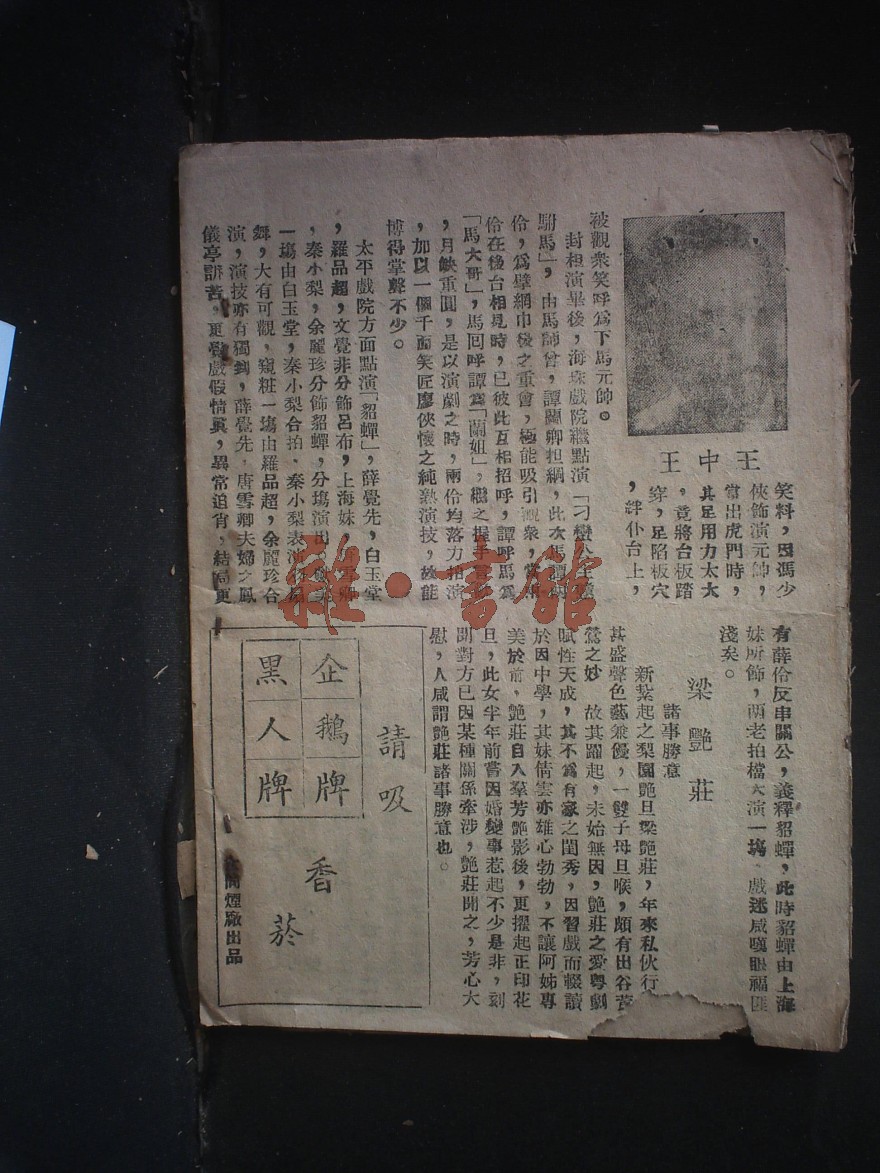 王中王
笑料，因馮少
俠飾演元帥，
當出虎門時，
其足用力太大
。竟將台板踏
穿，足陷板穴
，絆仆台上，
被觀衆笑呼爲下馬元帥。
封相演畢後，海珠戲院繼點演「刁蠻公主
駙馬」，由馬師曾，譚蘭卿担綱，此次馬譚
伶，爲擘網巾後之重會，極能吸引觀衆，
伶在後台相見時，已彼此互相招呼，譚呼馬爲
「馬大哥」，馬回呼譚爲「蘭姐」，繼之握手
，月缺重圓，是以演劇之時，兩伶均落力相演
，加以一個千面笑匠廖俠懷之純熟演技，故能
博得堂聲不少。
太平戲院方面點演「貂蟬」，薛覺先，白玉堂
，羅品超，文覺非分飾呂布，上海妹，雪卿
，秦小梨，余麗珍分飾貂蟬，分塲演出，
一塲由白玉堂，秦小梨合拍，秦小梨表演
舞，大有可觀，窺粧一塲由羅品超，余麗珍合
演，演技亦有獨到，薛覺先，唐雪卿夫婦之鳳
儀亭訴苦，更覺戲假情眞，異常迫肖，結局更
有薛伶反串關公，義釋貂蟬，此時貂蟬由上海
妹所飾，兩老拍檔大演一塲，戲迷咸嘆眼福匪
淺矣。
梁艷莊
諸事勝意
新紮起之梨園艷旦梁艷莊，年來私伙行
其盛聲色藝兼優，一雙子母旦喉，頗有出谷
鶯之妙　故其躍起，未始無因，艷莊之愛粵劇
賦性天成，其不爲有家之閨秀，因習戲而輟讀
於因中學，其妹倩雲亦雄心勃勃，不讓阿姊專
美於前，艷莊自入羣芳艷影後，更擢起正印花
旦，此女半年前嘗因婚變事惹起不少是非，刻
聞對方已因某種關係牽涉，艷莊聞之，芳心大
慰，人咸謂艷莊諸事勝意也。
請吸
企鵝牌
黑人牌
香菸
煙廠出品
雜·書館